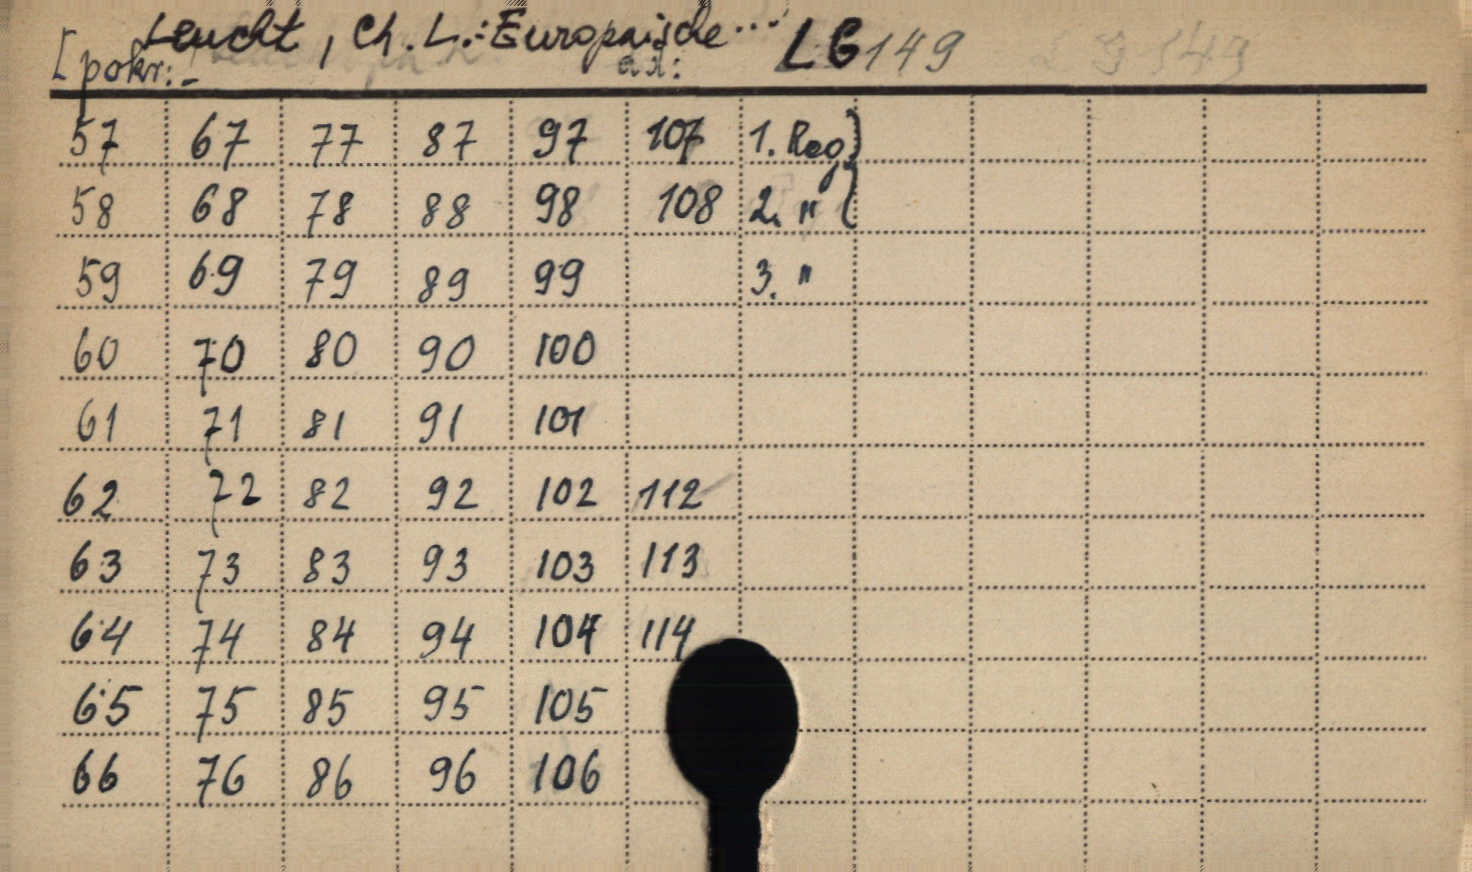 Leucht, Ch. L.: Europäische... LG 149
[pokr:-
57 67 77 87 97 107 1. Reg. }
58 68 78 88 98 108 2. " {
59 69 79 89 99 3. "
60 70 80 90 100
61 71 81 91 101
62 72 82 92 102 112
63 73 83 93 103 113
64 74 84 94 104 114
65 75 85 95 105
66 76 86 96 106